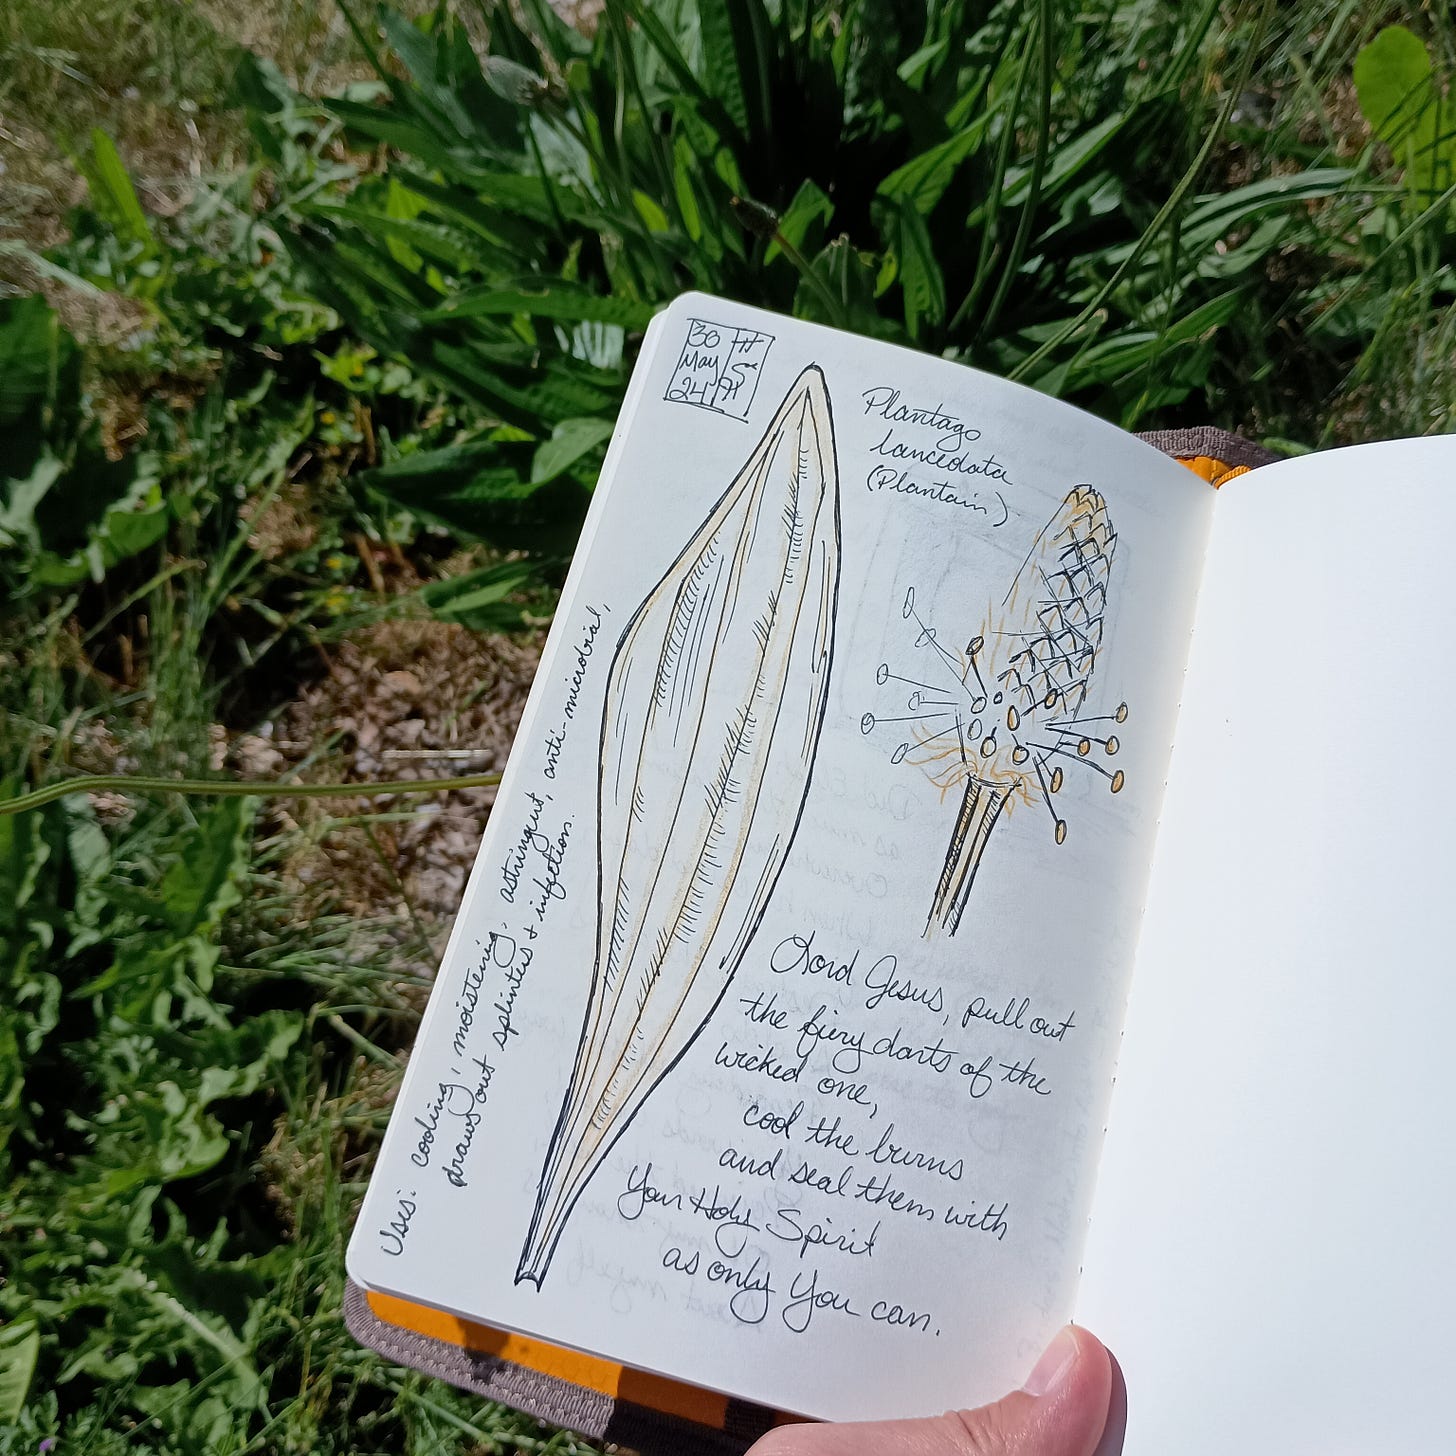 30
May
24
Plantago
lanceolata
(Plantain)
Uses: cooling, moistening, astringent, anti-microbial,
draws out splinters + infections.
Lord Jesus, pull out
the fiery darts of the
wicked one,
cool the burns
and seal them with
Your Holy Spirit
as only You can.